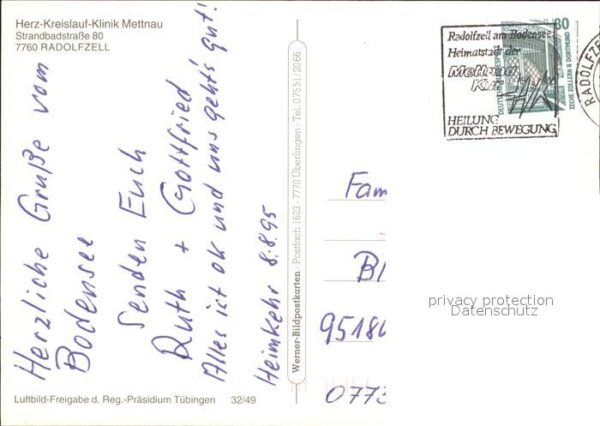 Herz-Kreislauf-Klinik Mettnau
Strandbadstraße 80
7760 RADOLFZELL
Herzliche Gruße vom
Bodensee
Senden Euch
Ruth + Gottfried
Alles ist ok und uns geht's gut!
Heimkehr 8.8.95
Luftbild-Freigabe d. Reg.-Präsidium Tübingen 32/49
Werner-Bildpostkarten · Postfach 1623 · 7770 Überlingen · Tel. 07551/2066
Radolfzell am Bodensee
Heimatstadt der
Mettnau
Kur
HEILUNG
DURCH BEWEGUNG
80
DEUTSCHE BUNDESPOST
ZECHE ZOLLERN II DORTMUND
RADOLFZE
Fam
Bl
9518
privacy protection
Datenschutz
0773